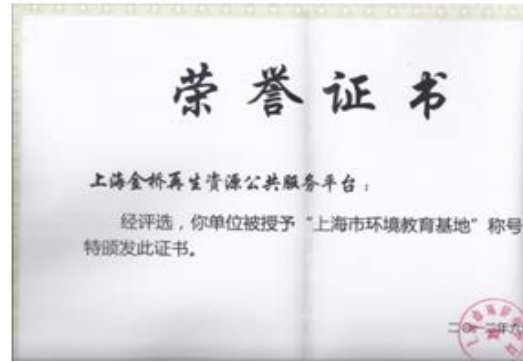 荣誉证书
上海金桥再生资源公共服务平台：
经评选，你单位被授予“上海市环境教育基地”称号
特颁发此证书。
二〇一二年六